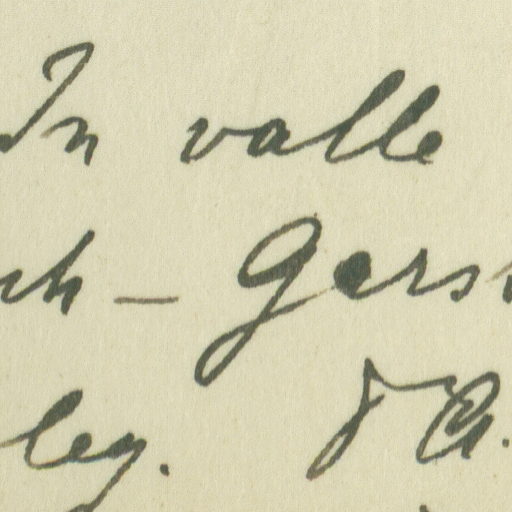 In valle
ch - Gers
leg.